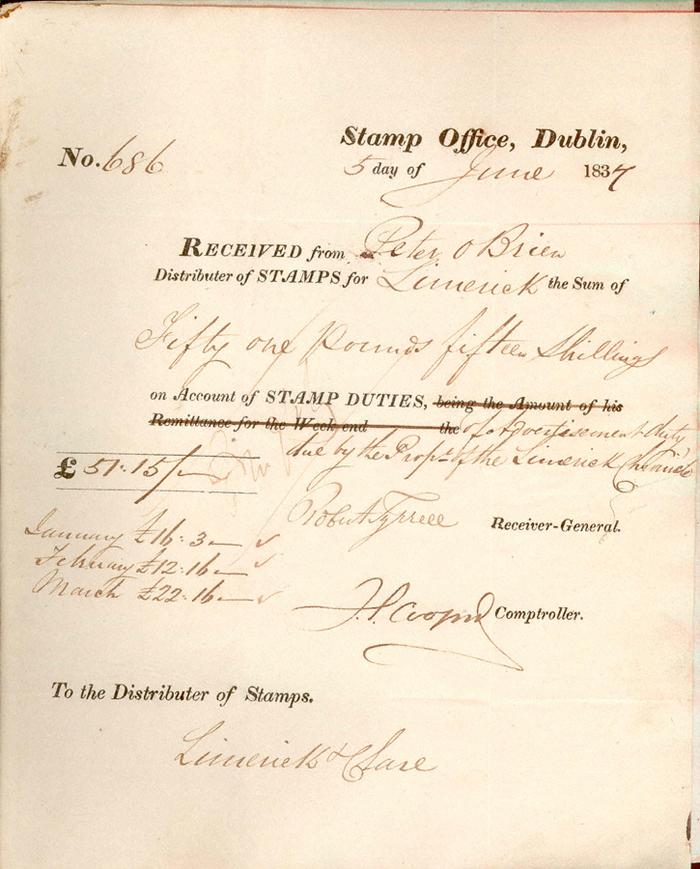 Stamp Office, Dublin,
No. 686
5 day of June 1837
RECEIVED from Peter O Brien
Distributer of STAMPS for Limerick the Sum of
Fifty one Pounds fifteen Shillings
on Account of STAMP DUTIES, being the Amount of his
Remittance for the Week end the of Advertisement duty
due by the Propr of the Limerick Chronicle
£ 51:15/-
Robert Tyrrell Receiver-General.
January £16:3-
February £12:16-
March £22:16-
Comptroller.
To the Distributer of Stamps.
Limerick & Clare